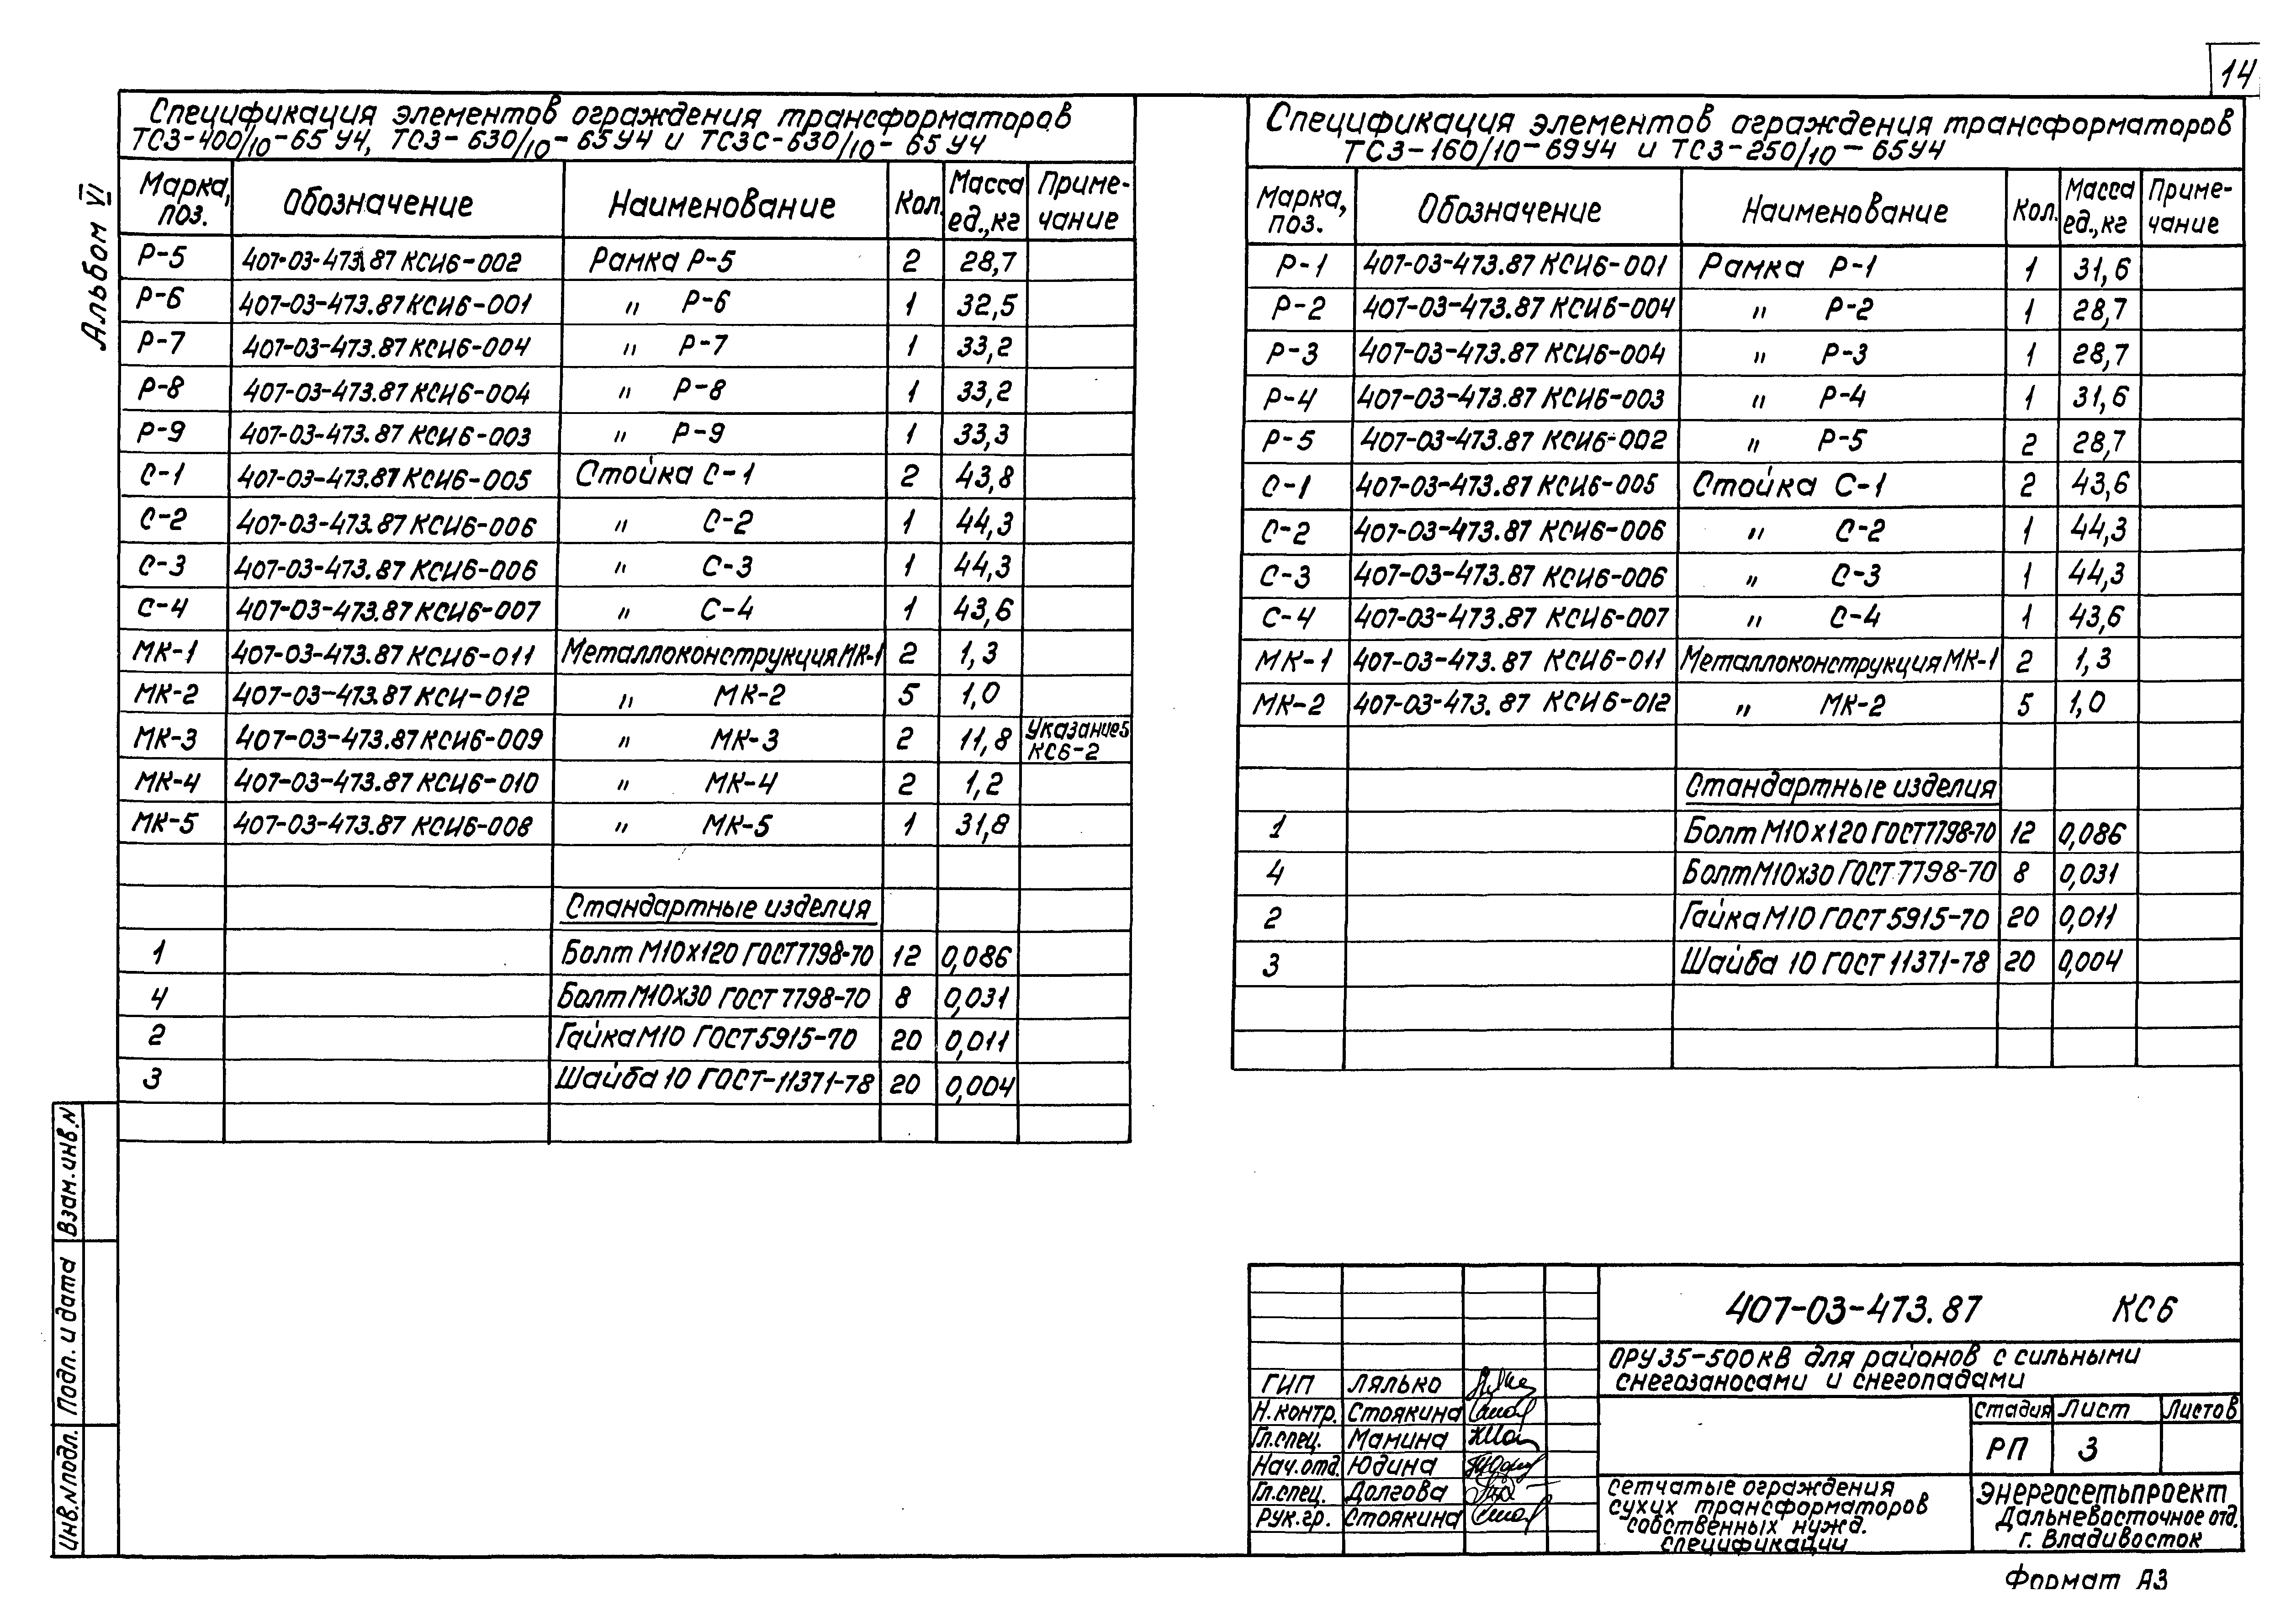 14
Альбом VI
Спецификация элементов ограждения трансформаторов
ТСЗ-400/10-65 У4, ТСЗ-630/10-65У4 и ТСЗС-630/10-65 У4
Марка, поз. Обозначение Наименование Кол. Масса ед., кг Приме-чание
Р-5 407-03-473.87 КСИ6-002 Рамка Р-5 2 28,7
Р-6 407-03-473.87 КСИ6-001 " Р-6 1 32,5
Р-7 407-03-473.87 КСИ6-004 " Р-7 1 33,2
Р-8 407-03-473.87 КСИ6-004 " Р-8 1 33,2
Р-9 407-03-473.87 КСИ6-003 " Р-9 1 33,3
С-1 407-03-473.87 КСИ6-005 Стойка С-1 2 43,8
С-2 407-03-473.87 КСИ6-006 " С-2 1 44,3
С-3 407-03-473.87 КСИ6-006 " С-3 1 44,3
С-4 407-03-473.87 КСИ6-007 " С-4 1 43,6
МК-1 407-03-473.87 КСИ6-011 Металлоконструкция МК-1 2 1,3
МК-2 407-03-473.87 КСИ-012 " МК-2 5 1,0
МК-3 407-03-473.87 КСИ6-009 " МК-3 2 11,8 Указание5 КС6-2
МК-4 407-03-473.87 КСИ6-010 " МК-4 2 1,2
МК-5 407-03-473.87 КСИ6-008 " МК-5 1 31,8
Стандартные изделия
1 Болт М10х120 ГОСТ7798-70 12 0,086
4 Болт М10х30 ГОСТ 7798-70 8 0,031
2 Гайка М10 ГОСТ5915-70 20 0,011
3 Шайба 10 ГОСТ-11371-78 20 0,004
Спецификация элементов ограждения трансформаторов
ТСЗ-160/10-69У4 и ТСЗ-250/10-65У4
Марка, поз. Обозначение Наименование Кол. Масса ед., кг Приме-чание
Р-1 407-03-473.87 КСИ6-001 Рамка Р-1 1 31,6
Р-2 407-03-473.87 КСИ6-004 " Р-2 1 28,7
Р-3 407-03-473.87 КСИ6-004 " Р-3 1 28,7
Р-4 407-03-473.87 КСИ6-003 " Р-4 1 31,6
Р-5 407-03-473.87 КСИ6-002 " Р-5 2 28,7
С-1 407-03-473.87 КСИ6-005 Стойка С-1 2 43,6
С-2 407-03-473.87 КСИ6-006 " С-2 1 44,3
С-3 407-03-473.87 КСИ6-006 " С-3 1 44,3
С-4 407-03-473.87 КСИ6-007 " С-4 1 43,6
МК-1 407-03-473.87 КСИ6-011 Металлоконструкция МК-1 2 1,3
МК-2 407-03-473.87 КСИ6-012 " МК-2 5 1,0
Стандартные изделия
1 Болт М10х120 ГОСТ7798-70 12 0,086
4 Болт М10х30 ГОСТ 7798-70 8 0,031
2 Гайка М10 ГОСТ 5915-70 20 0,011
3 Шайба 10 ГОСТ 11371-78 20 0,004
Взам.инв.N
Подп. и дата
Инв.Nподл.
407-03-473.87 КС6
ОРУ 35-500кВ для районов с сильными
снегозаносами и снегопадами
ГИП Лялько
Н.контр. Стоякина
Гл.спец. Мамина
Нач.отд. Юдина
Гл.спец. Долгова
Рук.гр. Стоякина
Стадия Лист Листов
РП 3
Сетчатые ограждения
сухих трансформаторов
собственных нужд.
Спецификации
Энергосетьпроект
Дальневосточное отд.
г. Владивосток
Формат А3